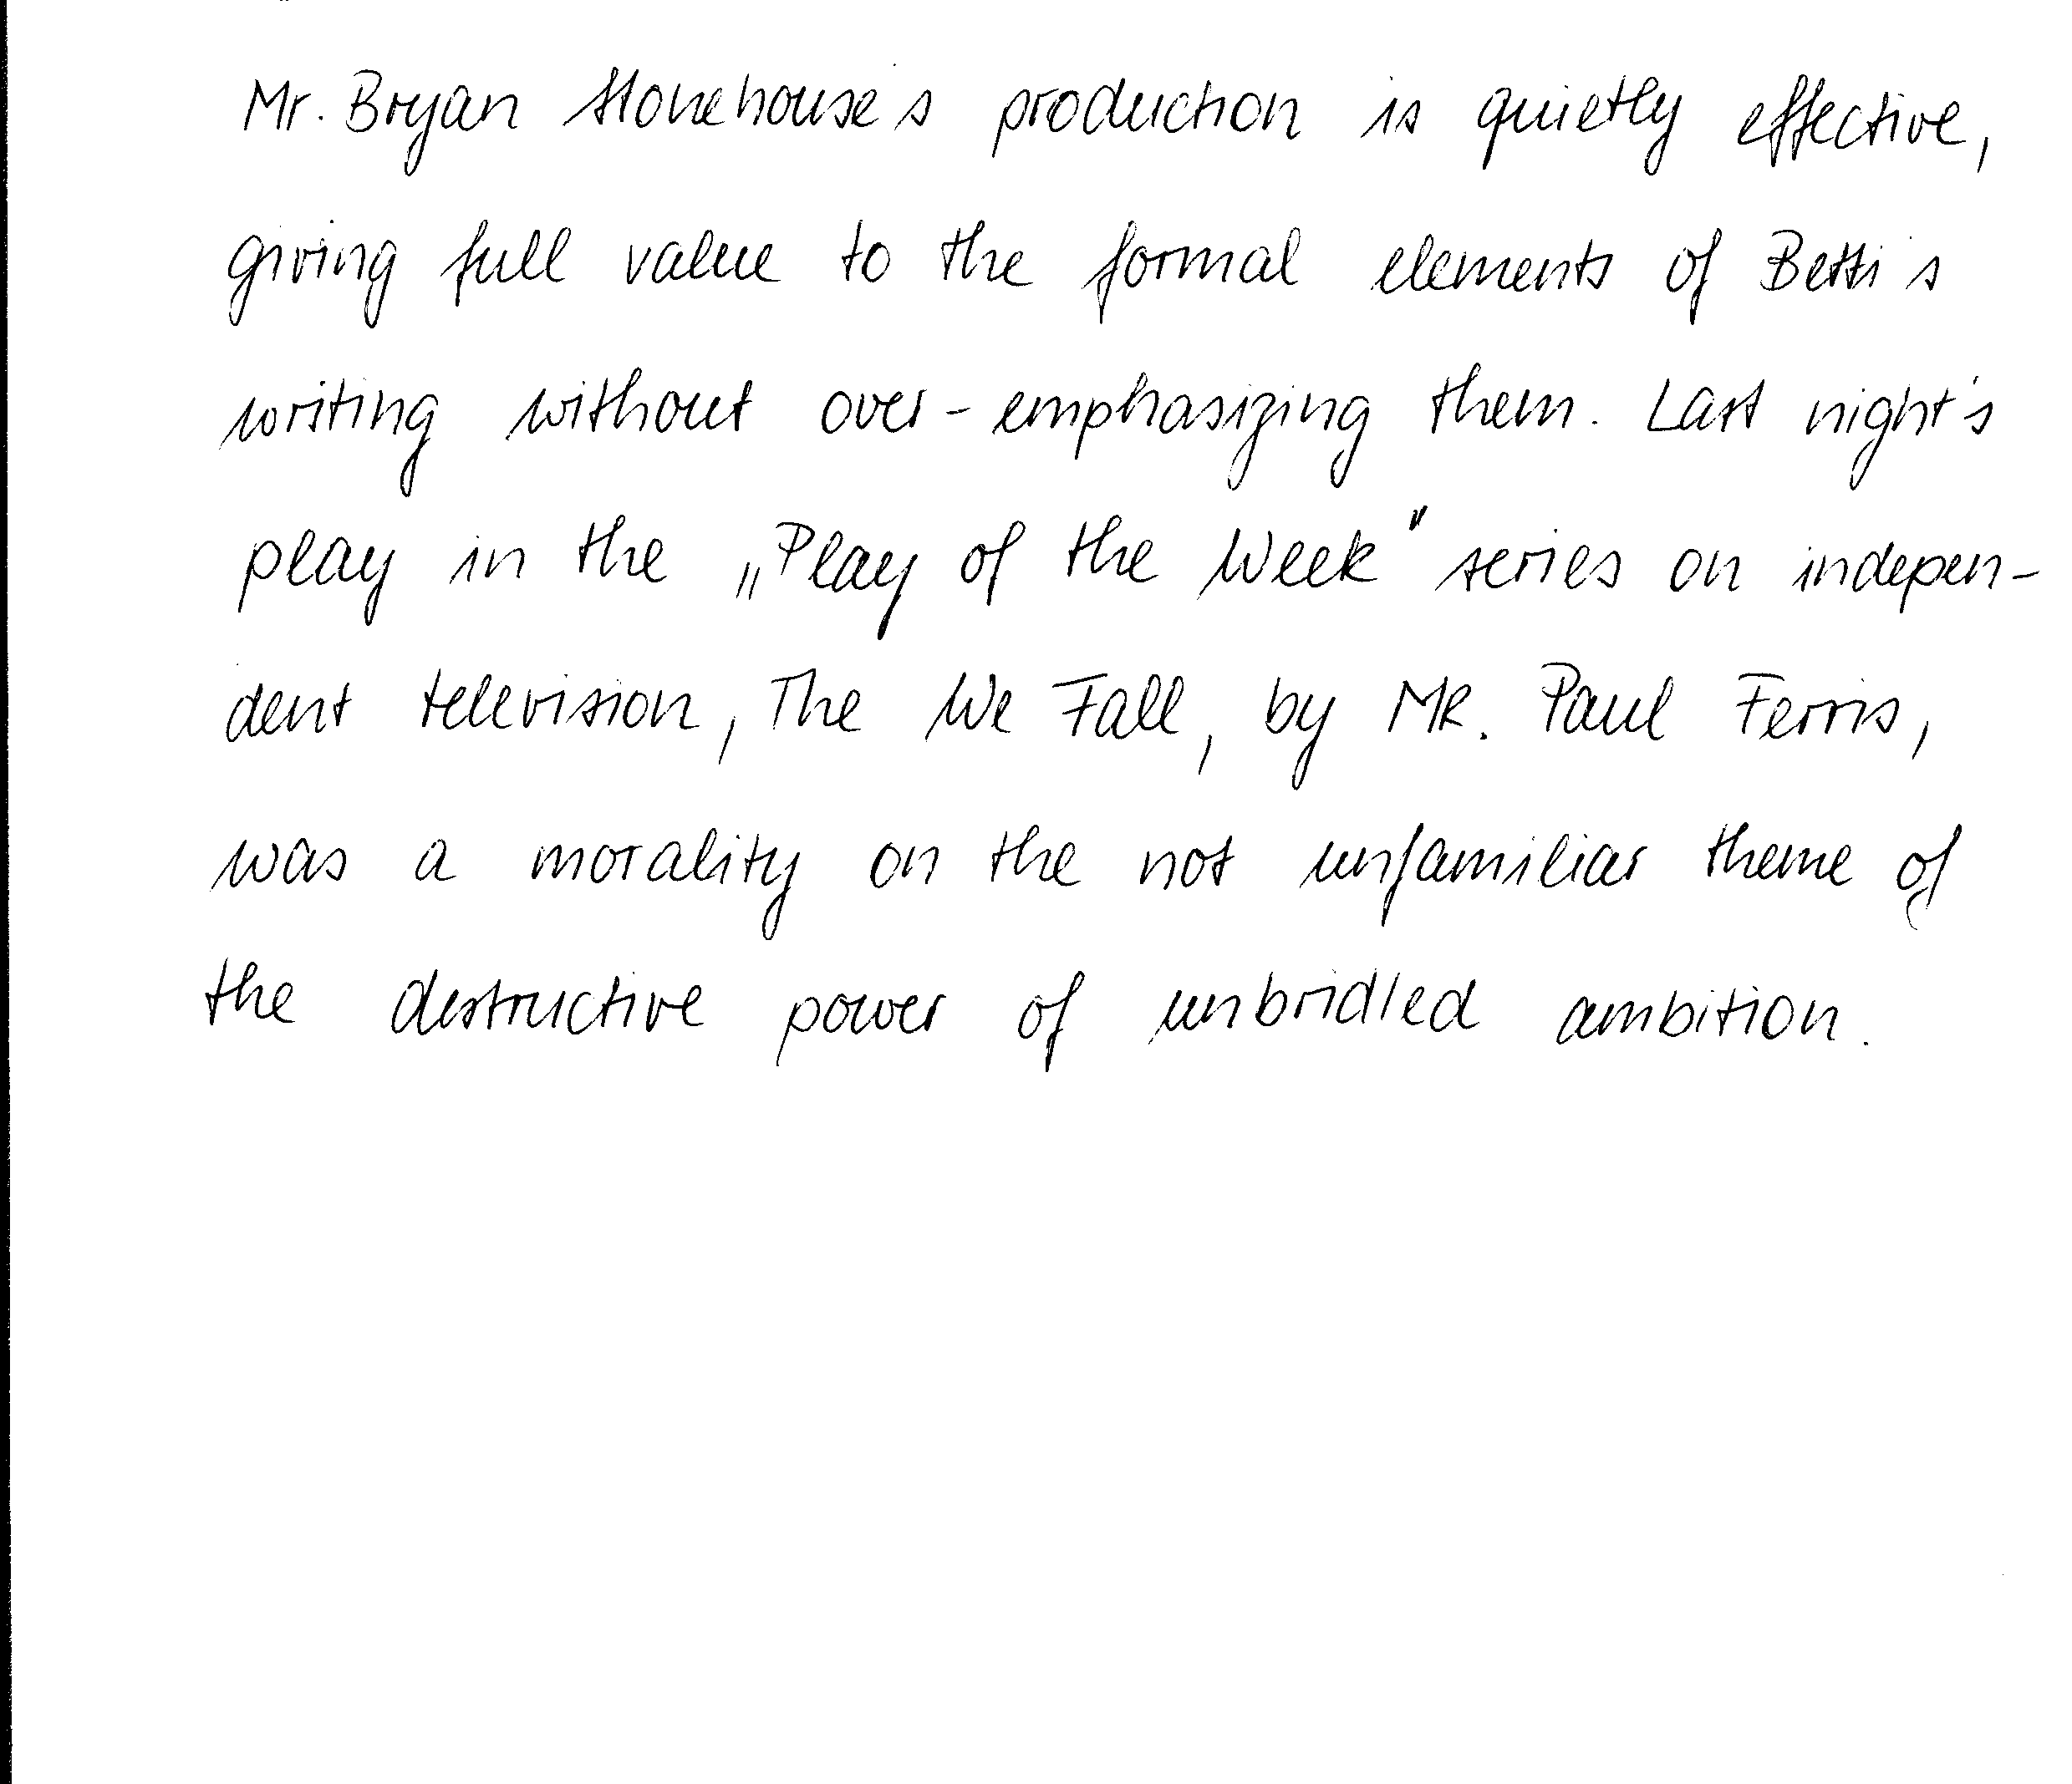 Mr. Bryan Stonehouse's production is quietly effective,
giving full value to the formal elements of Betti's
writing without over-emphasizing them. Last night's
play in the „Play of the Week" series on indepen-
dent television, The We Fall, by MR. Paul Ferris,
was a morality on the not unfamiliar theme of
the destructive power of unbridled ambition.